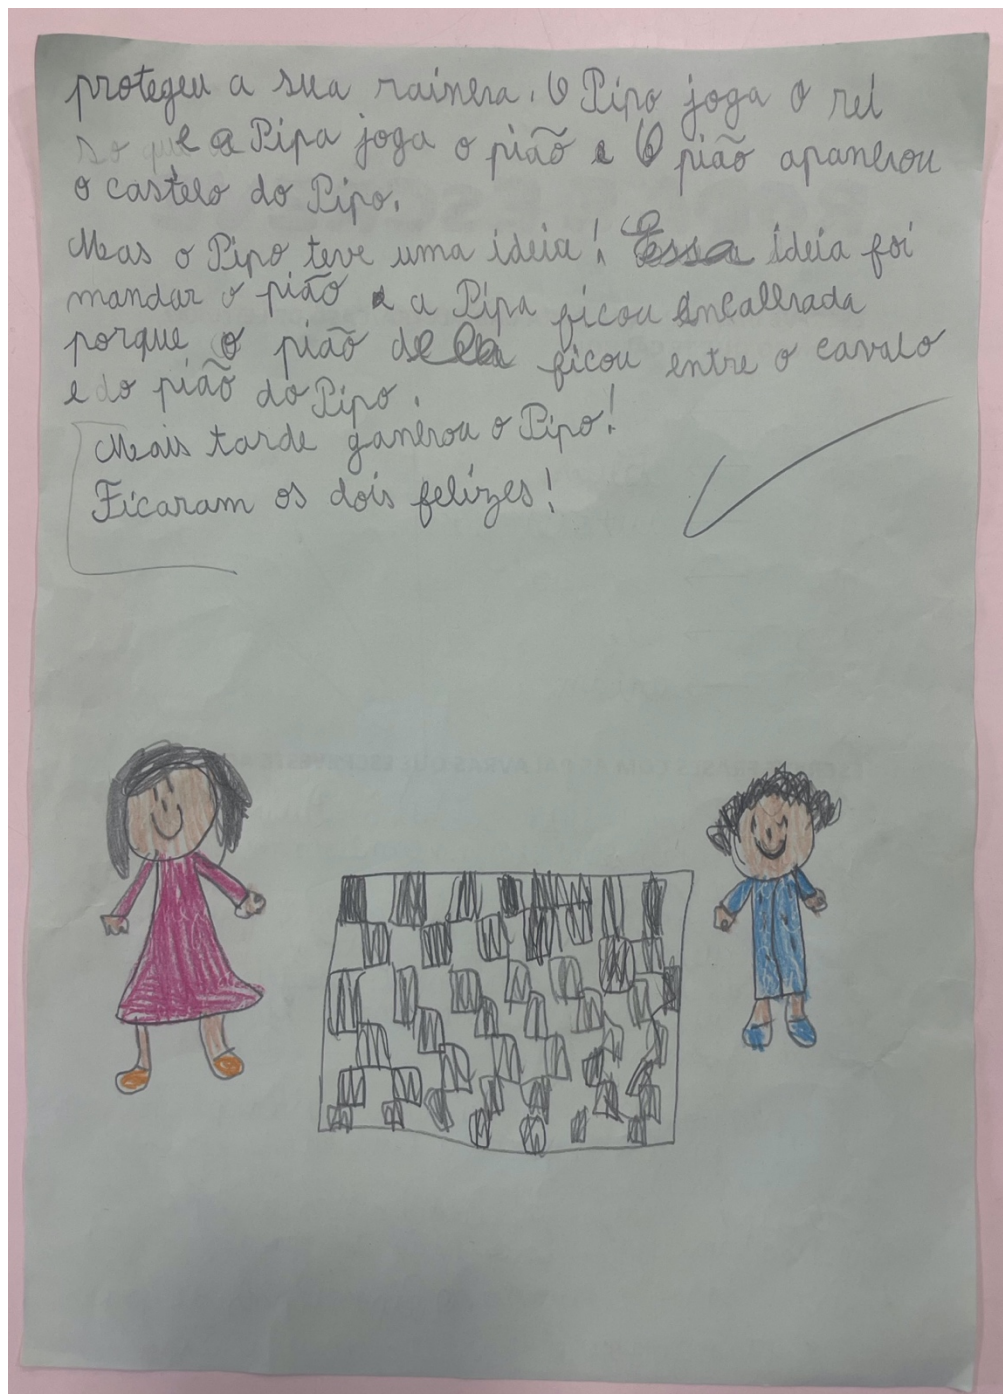 protegeu a sua rainha. O Pipo joga o rei
e a Pipa joga o pião e O pião apanhou
o castelo do Pipo.
Mas o Pipo teve uma ideia! Essa ideia foi
mandar o pião e a Pipa ficou encalhada
porque o pião dela ficou entre o cavalo
e do pião do Pipo.
Mais tarde ganhou o Pipo!
Ficaram os dois felizes!